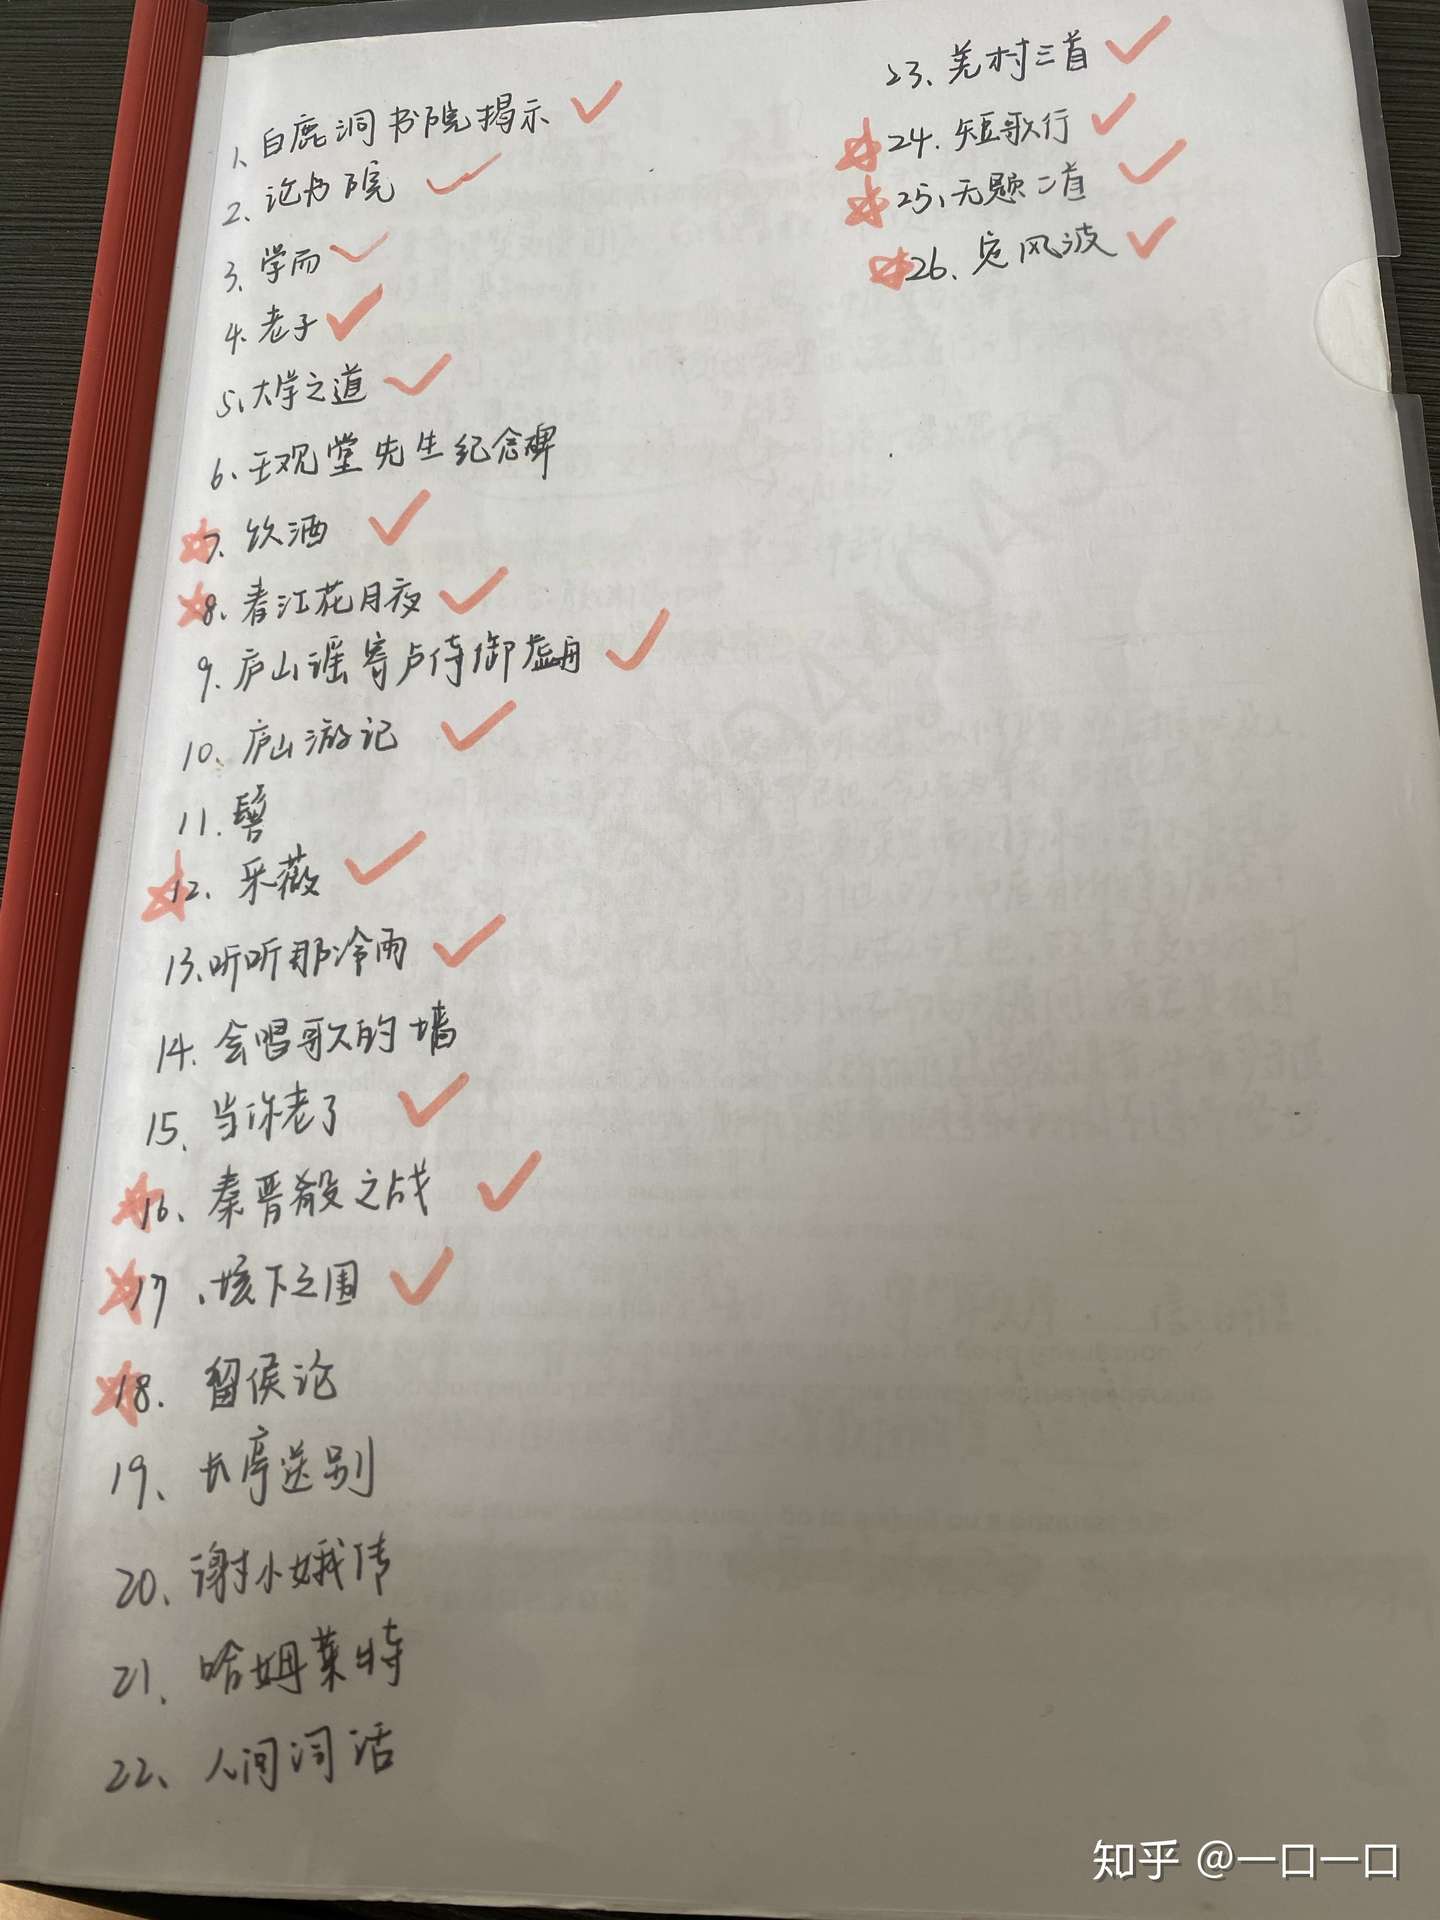 1、白鹿洞书院揭示
2、论书院
3、学而
4、老子
5、大学之道
6、王观堂先生纪念碑
7、饮酒
8、春江花月夜
9、庐山谣寄卢侍御虚舟
10、庐山游记
11、髻
12、采薇
13、听听那冷雨
14、会唱歌的墙
15、当你老了
16、秦晋殽之战
17、垓下之围
18、留侯论
19、长亭送别
20、谢小娥传
21、哈姆莱特
22、人间词话
23、羌村三首
24、短歌行
25、无题二首
26、定风波
知乎 @一口一口